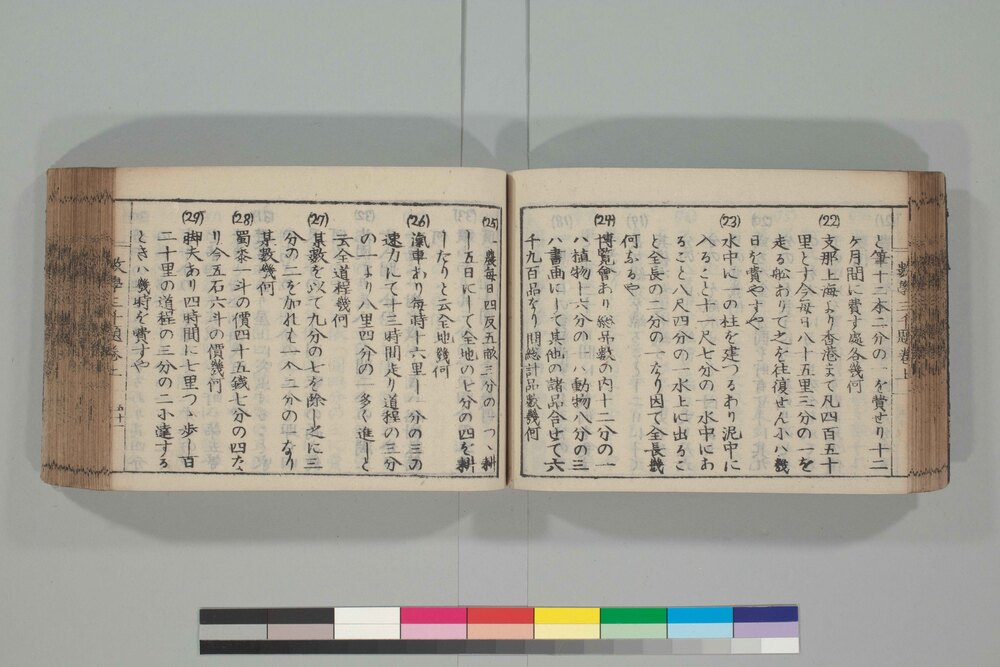 と筆十二本二分の一を費せり十二
ヶ月間に費す處各幾何
(22)
支那上海より香港まで凡四百五十
里とす今毎日八十五里三分の一を
走る舩ありて之を往復せん小ハ幾
日を費やすや
(23)
水中に一の柱を建つるあり泥中に
入ること十一尺七分の一水中にあ
ること八尺四分の一水上に出るこ
と全長の二分の一なり因て全長幾
何なるや
(24)
博覧會あり総品數の内十二分の一
ハ植物十六分の一ハ動物八分の三
ハ書画にして其他の諸品合せて六
千九百品なり問総計品數幾何
(25)
一農毎日四反五畝三分の一つヽ耕
し十五日にして全地の七分の四を耕
したりと云全地幾何
(26)
滊車あり毎時十六里一分の三の
速力にて十三時間走り道程の三分
の一より八里四分の一多く進しと
云全道程幾何
(27)
某數を以て九分の七を除し之に三
分の二を加れハ一个二分の一なり
某數幾何
(28)
蜀黍一斗の價四十五錢七分の四な
り今五石六斗の價幾何
(29)
脚夫あり四時間に七里つヽ歩し百
二十里の道程の三分の二小達する
ときハ幾時を費すや
五十